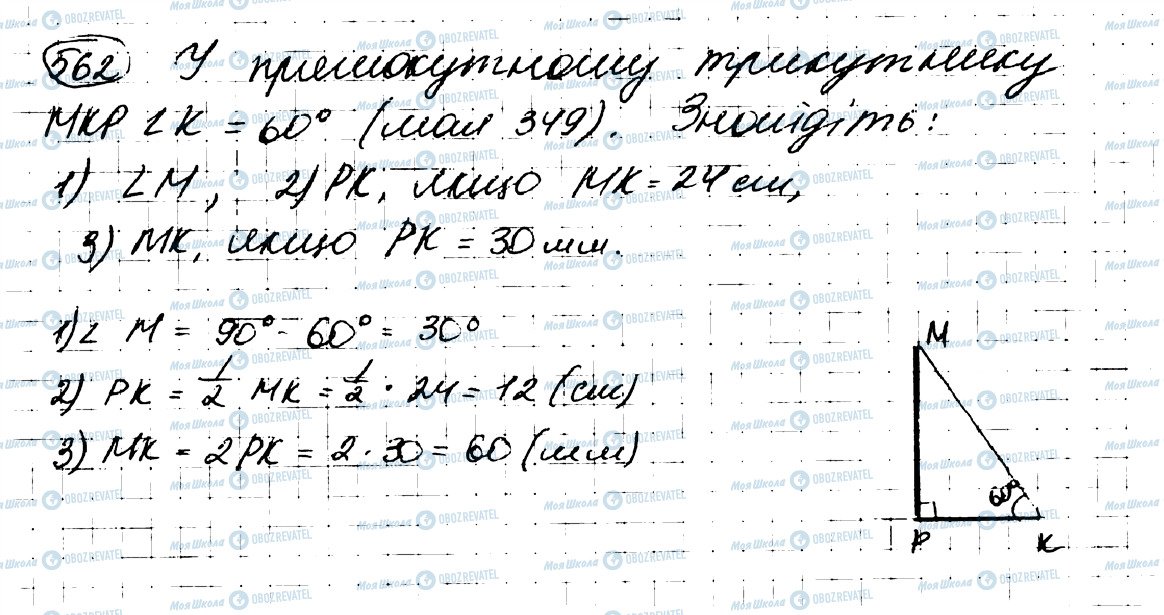 562 У прямокутному трикутнику
МКР ∠K = 60° (мал 349). Знайдіть:
1) ∠M; 2) PK, якщо MK = 24 см,
3) MK, якщо PK = 30 мм.
1) ∠M = 90° - 60° = 30°
2) PK = 1/2 MK = 1/2 · 24 = 12 (см)
3) MK = 2PK = 2 · 30 = 60 (мм)
M
60°
P K
Моя Школа OBOZREVATEL